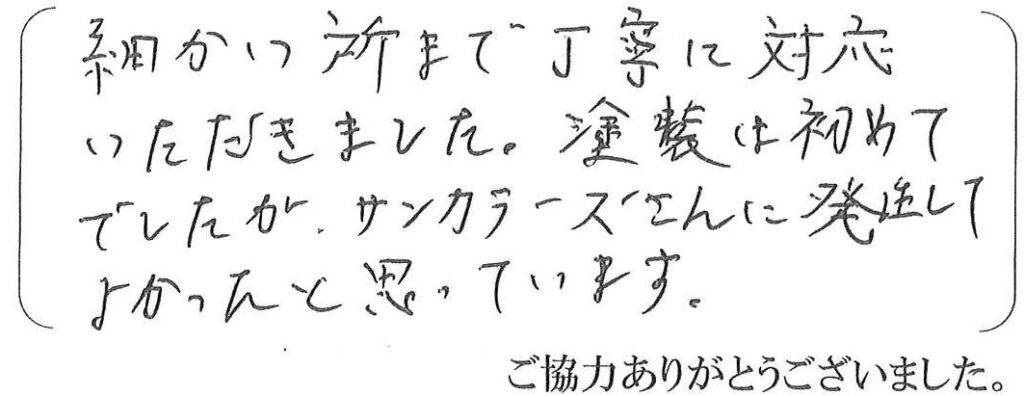 細かい所まで丁寧に対応
いただきました。塗装は初めて
でしたが、サンカラーズさんに発注して
よかったと思っています。
ご協力ありがとうございました。